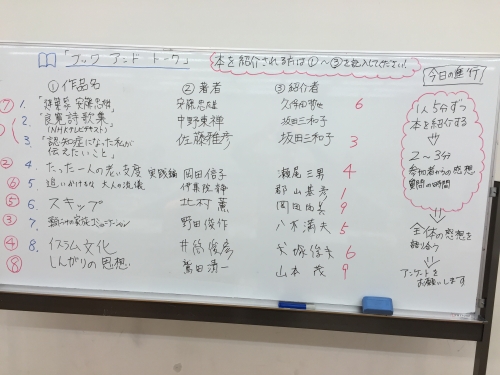 「ブック アンド トーク」
本を紹介される方は①〜③を記入してください!
今日の進行
①作品名 ②著者 ③紹介者
⑦ 1. 安藤忠雄」 安藤忠雄 6
2. 「良寛詩歌集」 中野東禅 坂田三和子
(NHKテレビテキスト)
3. 「認知症になった私が 佐藤雅彦 坂田三和子 3
伝えたいこと」
② 4. たった一人の老い支度 実践編 岡田信子 瀬尾三男 4
⑥ 5. 追いかけるな 大人の流儀 伊集院静 郡山 1
⑤ 6. スキップ 北村薫 岡田 9
③ 7. 野田俊作 八木満夫 5
④ 8. イスラム文化 井筒俊彦 犬塚 6
⑧ しんがりの思想 鷲田清一 山本茂 9
1人5分ずつ
本を紹介する
2〜3分
参加者からの感想
質問の時間
全体の感想を
語り合う
アンケートを
お願いします